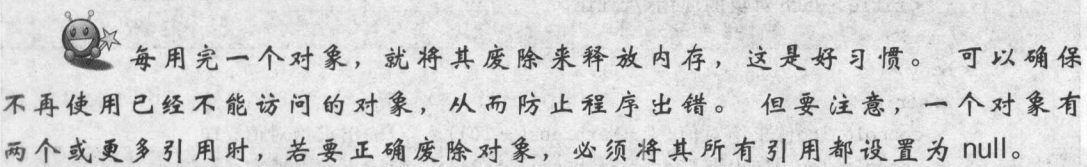 每用完一个对象，就将其废除来释放内存，这是好习惯。 可以确保
不再使用已经不能访问的对象，从而防止程序出错。 但要注意，一个对象有
两个或更多引用时，若要正确废除对象，必须将其所有引用都设置为 null。